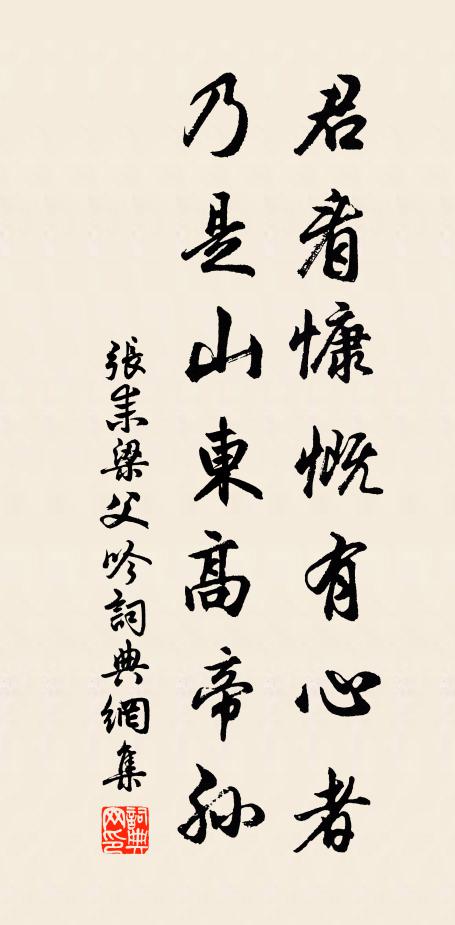 君看慷慨有心者
乃是山東高帝孫
張耒梁父吟詞典網集
詞典網印